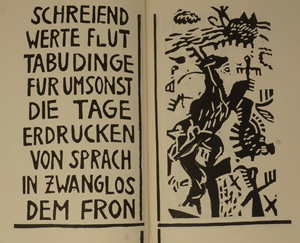 SCHREIEND
WERTE FLUT
TABU DINGE
FUR UMSONST
DIE TAGE
ERDRUCKEN
VON SPRACH
IN ZWANGLOS
DEM FRON